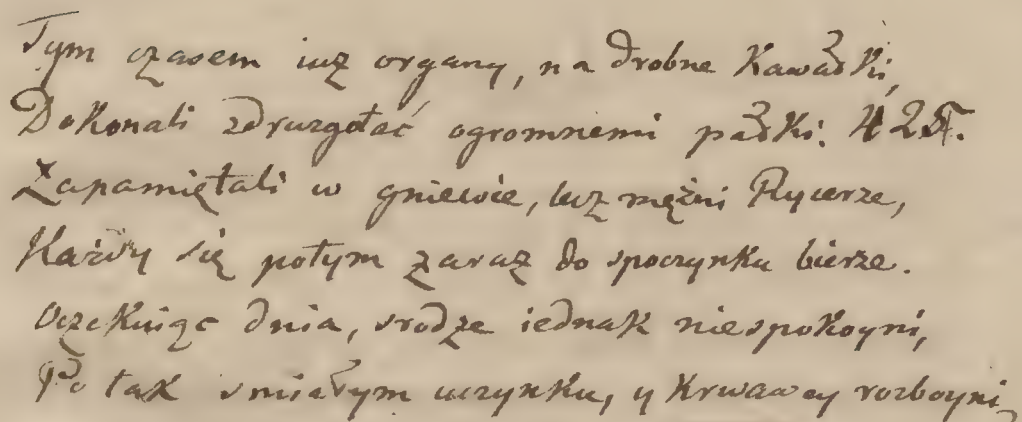 Tym czasem iuz organy, na drobne Kawałki,
Dokonali zdruzgotać ogromnemi pałki. 425.
Zapamiętali w gniewie, lecz mężni Rycerze,
Każdy się potym zaraz do spoczynku bierze.
Oczekuiąc dnia, srodze iednak niespokoyni,
Po tak smiałym uczynku, y Krwawey rozboyni